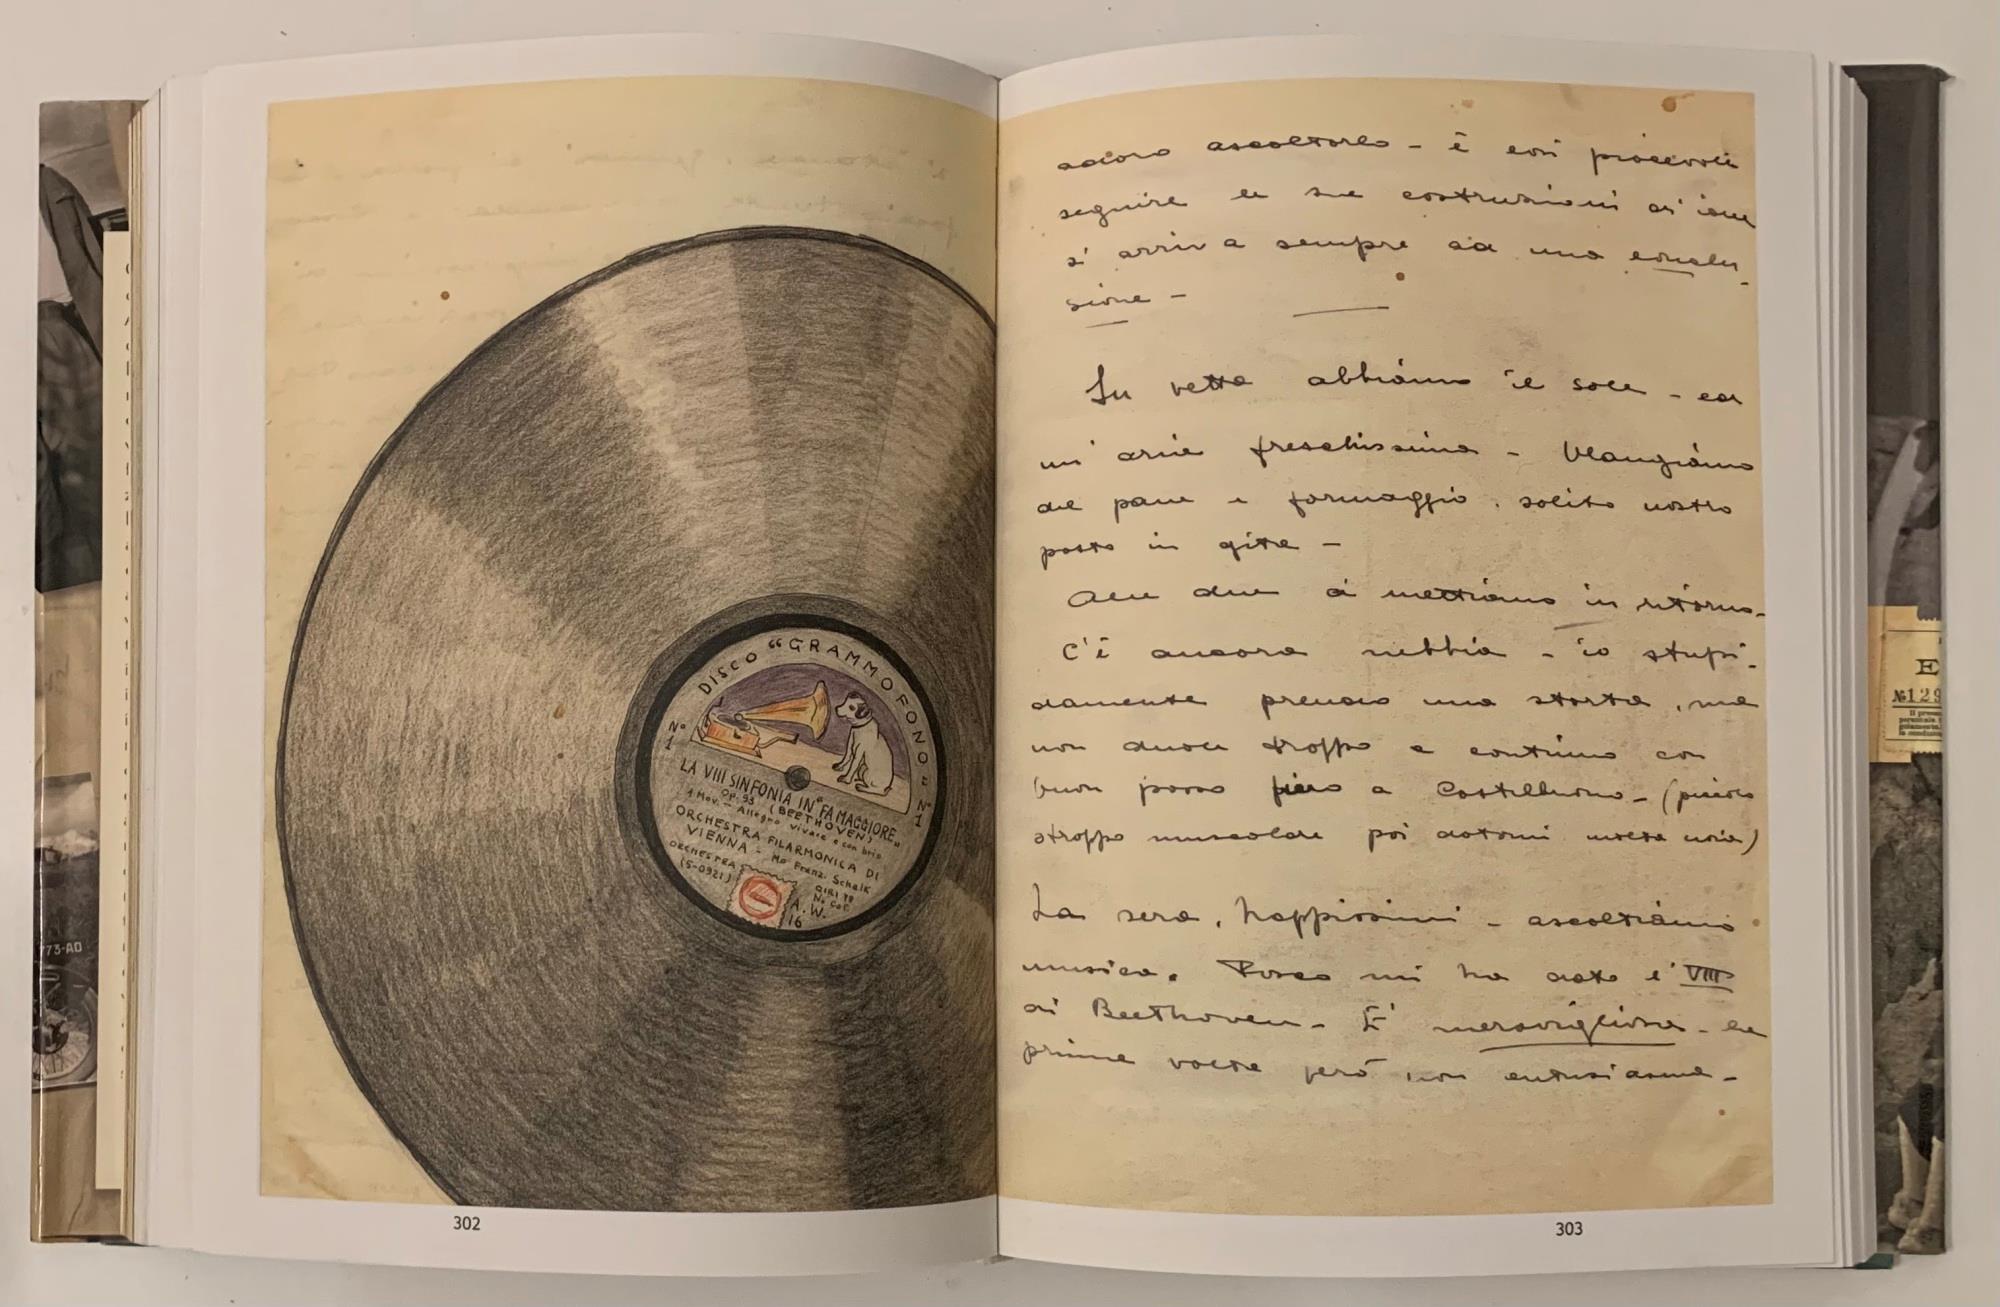 DISCO "GRAMMOFONO"
N° 1
N° 1
LA VIII SINFONIA IN "FA MAGGIORE"
Op. 93 (BEETHOVEN)
1 Mov. - Allegro vivace e con brio
ORCHESTRA FILARMONICA DI
VIENNA - Mo Franz. Schalk
ORCHESTRA
(5-0921)
GIRI 78
A. W.
16
302
adoro ascoltarlo - è così piacevole
seguire le sue costruzioni
si arriva sempre ad una conclu-
sione -
In vetta abbiamo il sole - ed
un' aria freschissima - Mangiamo
del pane e formaggio, solito nostro
pasto in gita -
Alle due ci mettiamo in ritorno -
C'è ancora nebbia - io stupi-
damente prendo una storta, ma
non duole troppo e continuo con
buon passo fino a Castelluccio - (
troppo muscolare poi molta noia)
La sera, - ascoltiamo
musica. mi ha dato l' VIII
di Beethoven - E' meravigliosa - la
prima volta però non entusiasma -
303
773-AD
E
№129